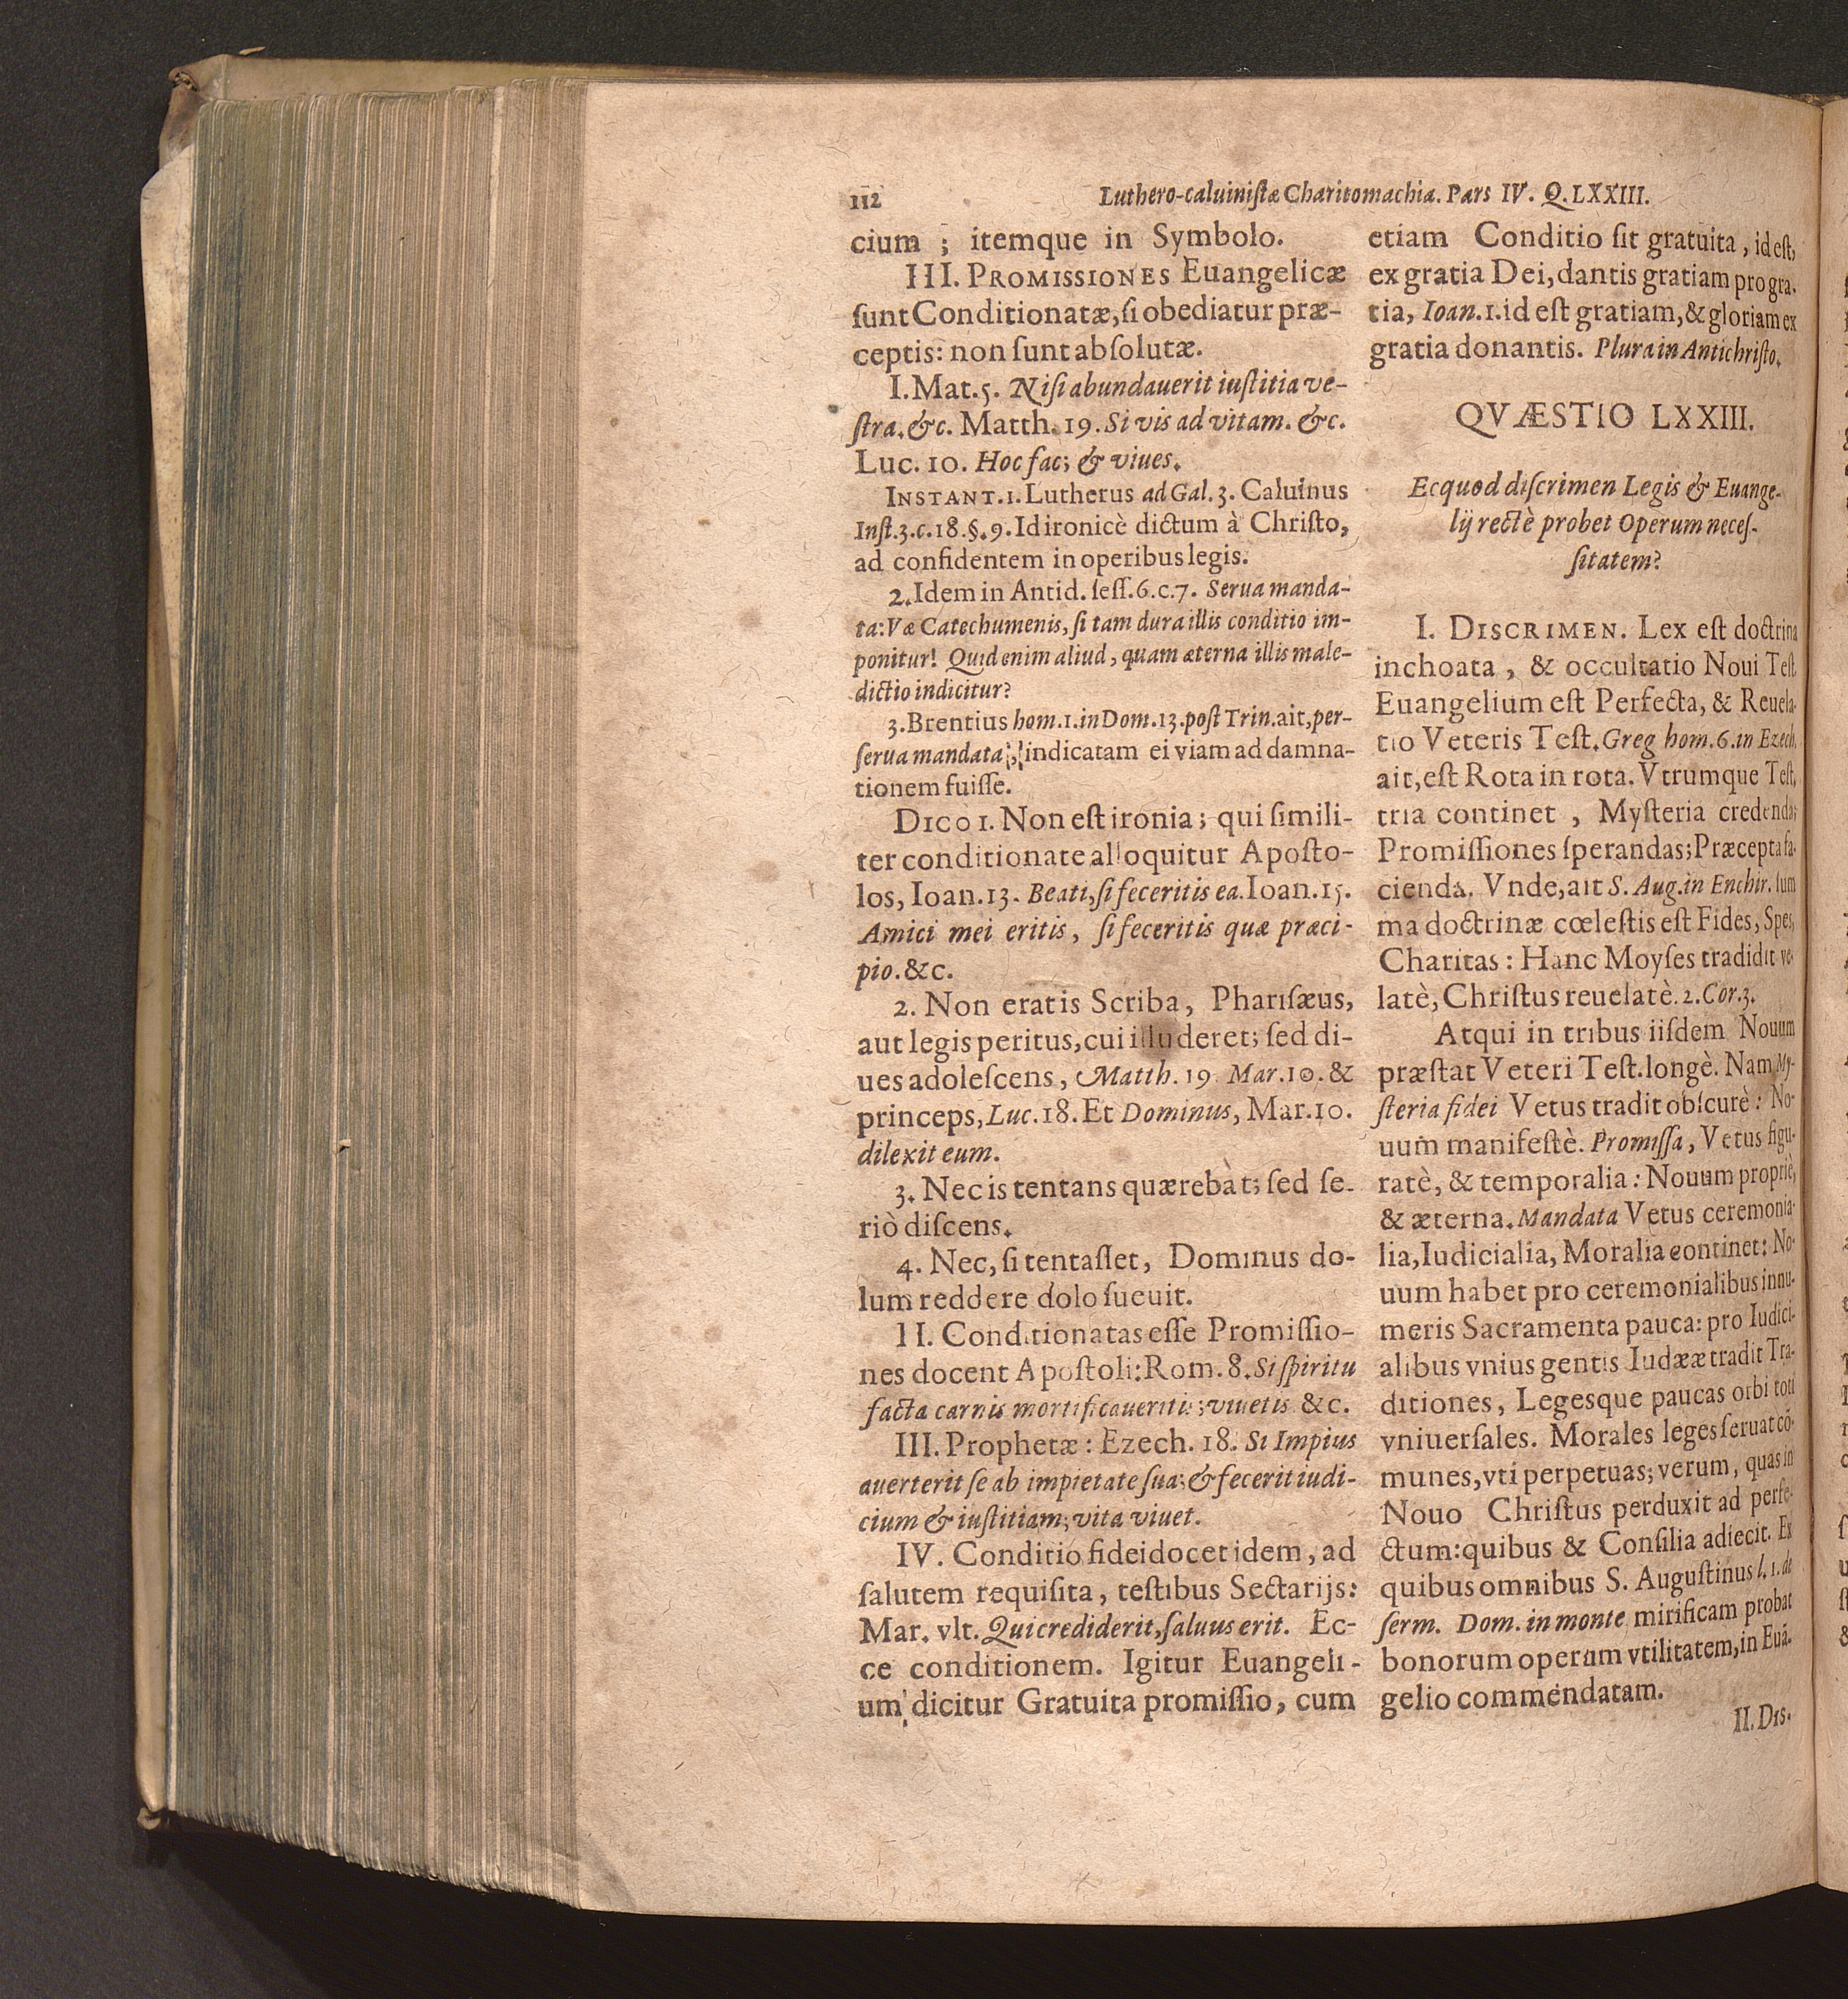 112
Luthero-caluinistæ Charitomachia. Pars IV. Q. LXXIII.
cium ; itemque in Symbolo.
III. PROMISSIONES Euangelicæ
sunt Conditionatæ, si obediatur præ-
ceptis: non sunt absolutæ.
I. Mat. 5. Nisi abundauerit iustitia ve-
stra. &c. Matth. 19. Si vis ad vitam. &c.
Luc. 10. Hoc fac; & viues.
INSTANT. 1. Lutherus ad Gal. 3. Caluinus
Inst. 3. c. 18. §. 9. Id ironicè dictum à Christo,
ad confidentem in operibus legis.
2. Idem in Antid. sess. 6. c. 7. Serua manda-
ta: Væ Catechumenis, si tam dura illis conditio im-
ponitur! Quid enim aliud, quam æterna illis male-
dictio indicitur?
3. Brentius hom. 1. in Dom. 13. post Trin. ait, per-
serua mandata, indicatam ei viam ad damna-
tionem fuisse.
DICO 1. Non est ironia; qui simili-
ter conditionate alloquitur Aposto-
los, Ioan. 13. Beati, si feceritis ea. Ioan. 15.
Amici mei eritis, si feceritis quæ præci-
pio. &c.
2. Non erat is Scriba, Pharisæus,
aut legis peritus, cui illuderet; sed di-
ues adolescens, Matth. 19. Mar. 10. &
princeps, Luc. 18. Et Dominus, Mar. 10.
dilexit eum.
3. Nec is tentans quærebat; sed se-
riò discens.
4. Nec, si tentasset, Dominus do-
lum reddere dolo sueuit.
II. Conditionatas esse Promissio-
nes docent Apostoli: Rom. 8. Si spiritu
facta carnis mortificaueritis; viuetis &c.
III. Prophetæ: Ezech. 18. Si Impius
auerterit se ab impietate sua; & fecerit iudi-
cium & iustitiam; vita viuet.
IV. Conditio fidei docet idem, ad
salutem requisita, testibus Sectarijs:
Mar. vlt. Qui crediderit, saluus erit. Ec-
ce conditionem. Igitur Euangeli-
um dicitur Gratuita promissio, cum
etiam Conditio sit gratuita, id est,
ex gratia Dei, dantis gratiam pro gra-
tia, Ioan. 1. id est gratiam, & gloriam ex
gratia donantis. Plura in Antichristo.
QVÆSTIO LXXIII.
Ecquod discrimen Legis & Euange-
lij rectè probet Operum neces-
sitatem?
I. DISCRIMEN. Lex est doctrina
inchoata, & occultatio Noui Test.
Euangelium est Perfecta, & Reuela-
tio Veteris Test. Greg hom. 6. in Ezech.
ait, est Rota in rota. Vtrumque Test.
tria continet, Mysteria credenda;
Promissiones sperandas; Præcepta fa-
cienda. Vnde, ait S. Aug. in Enchir. sum
ma doctrinæ cœlestis est Fides, Spes,
Charitas: Hanc Moyses tradidit ve-
latè, Christus reuelatè. 2. Cor. 3.
Atqui in tribus iisdem Nouum
præstat Veteri Test. longè. Nam My-
steria fidei Vetus tradit obscurè: No-
uum manifestè. Promissa, Vetus figu-
ratè, & temporalia: Nouum propriè,
& æterna. Mandata Vetus ceremonia-
lia, Iudicialia, Moralia continet: No-
uum habet pro ceremonialibus innu-
meris Sacramenta pauca: pro Iudici-
alibus vnius gentis Iudææ tradit Tra-
ditiones, Legesque paucas orbi toti
vniuersales. Morales leges seruat cō-
munes, vti perpetuas; verum, quas in
Nouo Christus perduxit ad perfe-
ctum: quibus & Consilia adiecit. Ex
quibus omnibus S. Augustinus l. 1. de
serm. Dom. in monte mirificam probat
bonorum operum vtilitatem, in Euā-
gelio commendatam.
II. DIS-